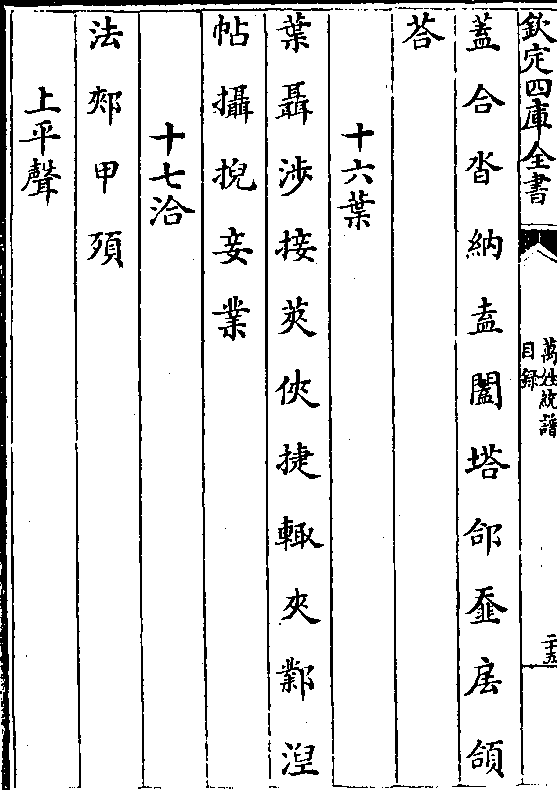 欽定四庫全書
萬姓統譜
目録
二十五
蓋合沓納盍闔塔郃䪞㕎頜
荅
十六葉
葉聶涉接莢俠捷輒夾鄴湼
帖攝掜妾業
十七洽
法郟甲
上平聲